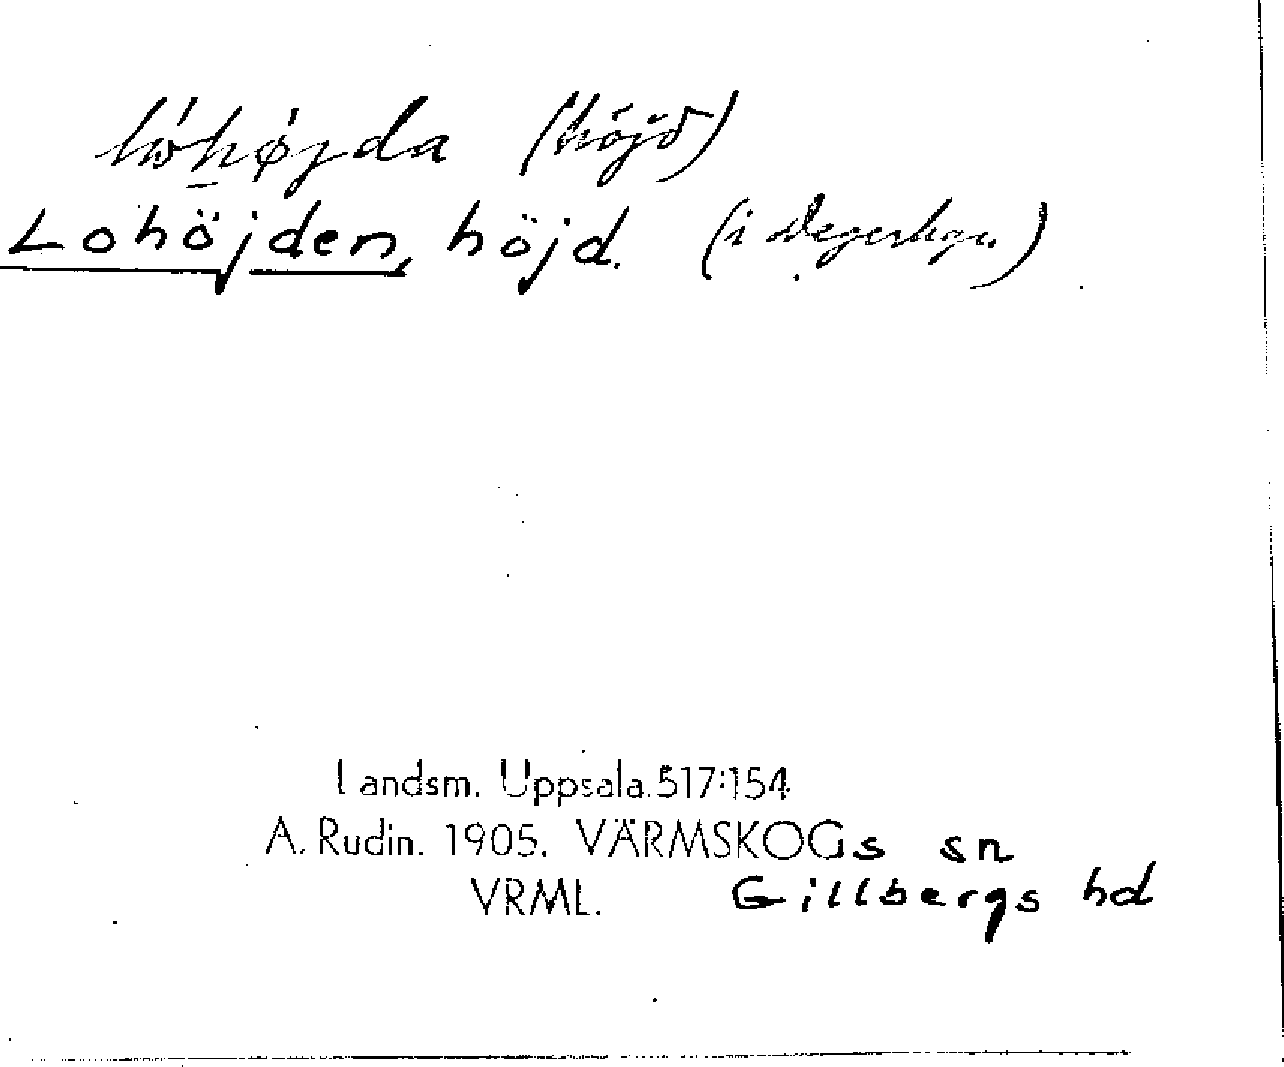 (höjd)
Lohöjden, höjd. (i
Landsm. Uppsala. 517:154
A. Rudin. 1905. VÄRMSKOGs sn
VRML. Gillbergs hd